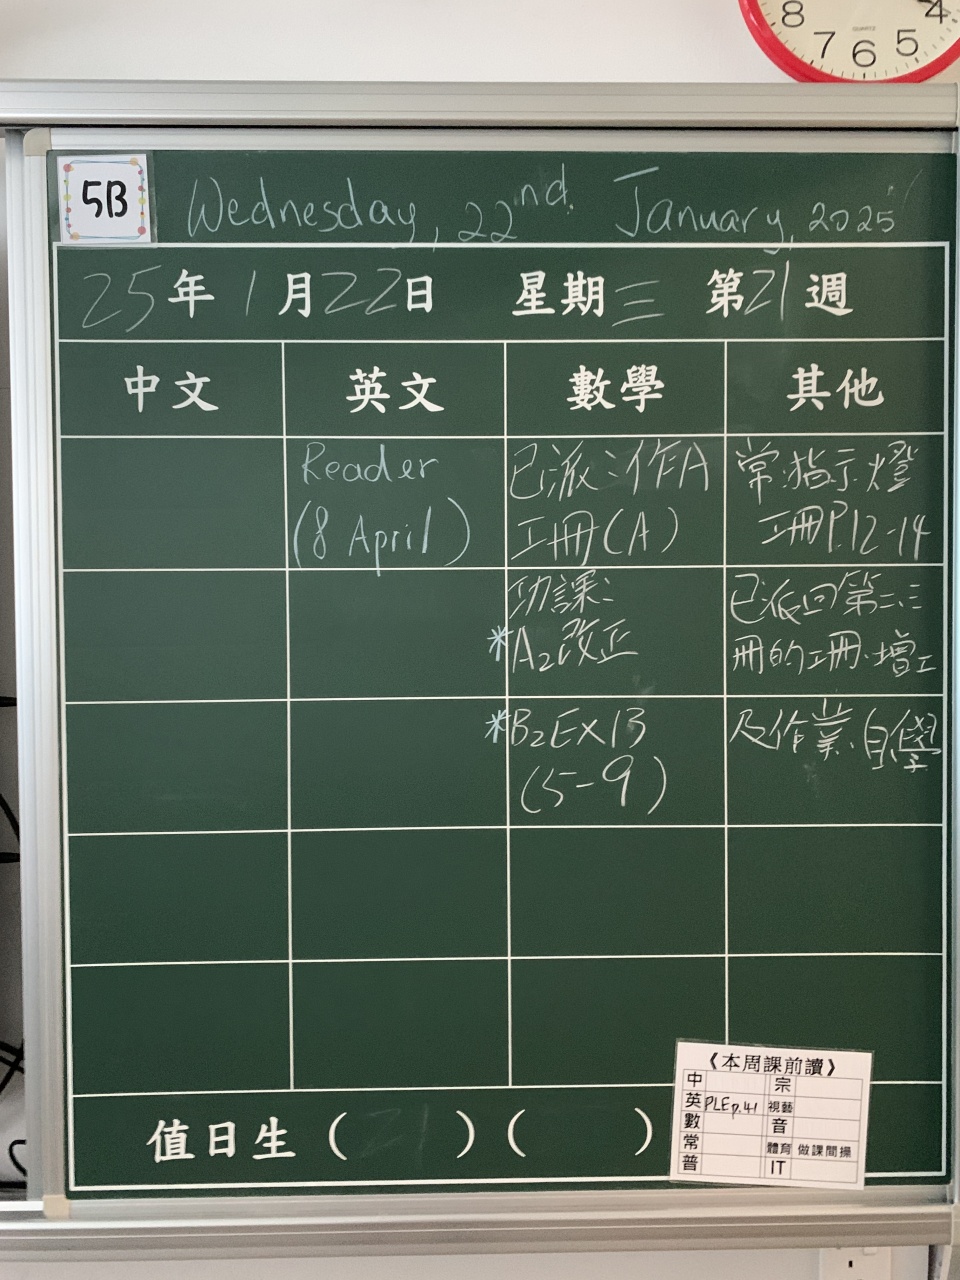 8 7 6 5 4
5B
Wednesday, 22nd. January, 2025
25年1月22日 星期三 第21週
中文 英文 數學 其他
Reader
(8 April)
已派:作A
工冊(A)
功課:
*A2改正
*B2Ex13
(5-9)
常:指示燈
工冊P.12-14
已派回第二、三
冊的工冊、增工
及作業、自學
《本周課前讀》
中 宗
英 PLEp.41 視藝
數 音
常 體育 做課間操
普 IT
值日生 ( ) ( )